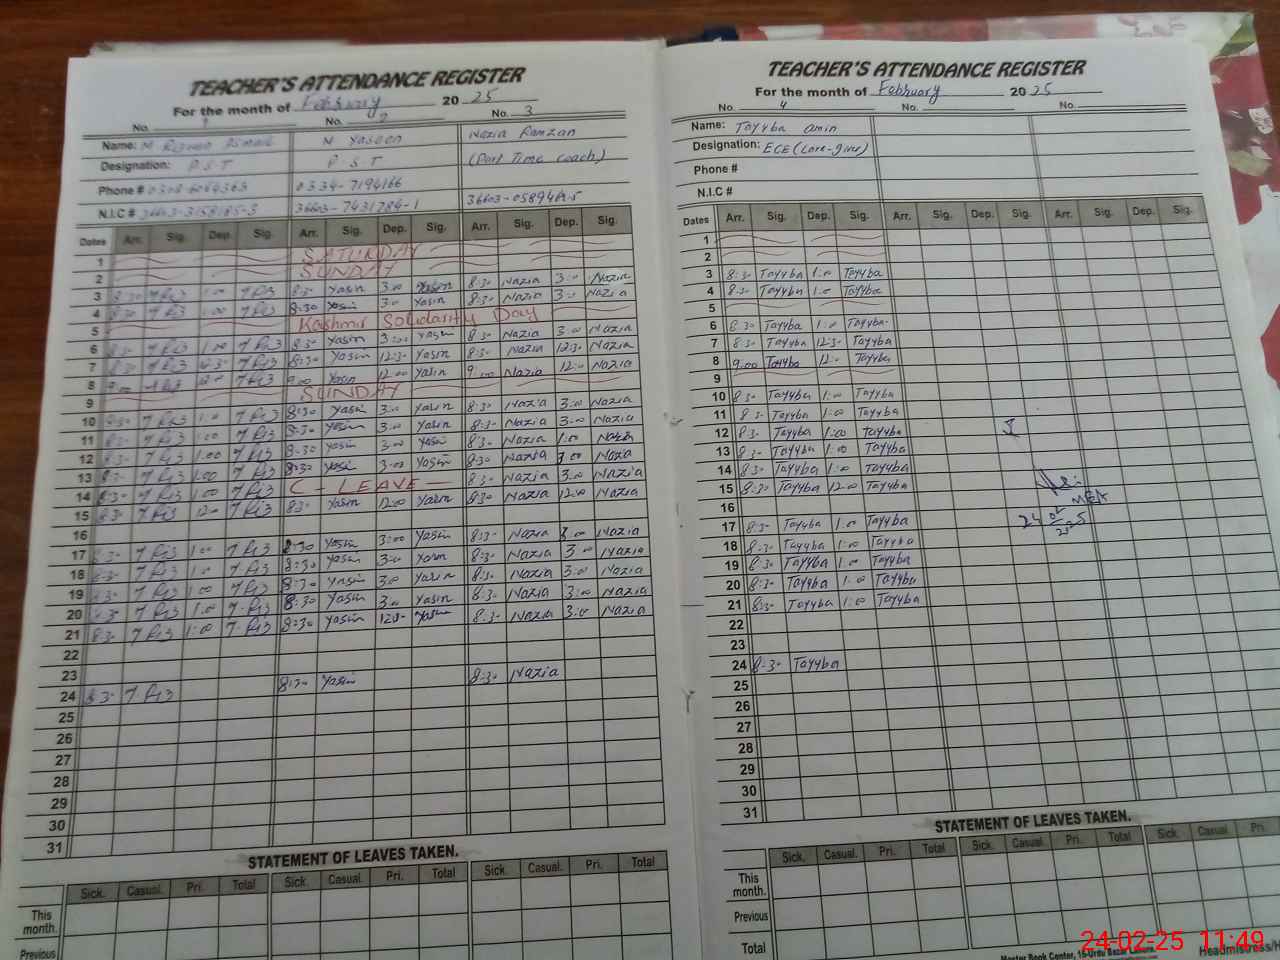 TEACHER'S ATTENDANCE REGISTER
For the month of February 2025
No. 1 No. 2 No. 3
Name: M N Yaseen Nazia Ramzan
Designation: P.S.T P.S.T (Part Time coach)
Phone # 0334-7194166
N.I.C # 36603-7431784-1
Dates Arr. Sig. Dep. Sig. Arr. Sig. Dep. Sig. Arr. Sig. Dep. Sig.
1 SATURDAY
2 SUNDAY
3 8:30 1:00 8:30 Yasin 3:00 Yasin 8:30 Nazia 3:00 Nazia
4 8:30 1:00 8:30 Yasin 3:00 Yasin 8:30 Nazia 3:00 Nazia
5 Kashmir Solidarity Day
6 8:30 1:00 8:30 Yasin 3:00 Yasin 8:30 Nazia 3:00 Nazia
7 8:30 12:30 8:30 Yasin 12:30 Yasin 8:30 Nazia 12:30 Nazia
8 9:00 12:00 9:00 Yasin 12:00 Yasin 9:00 Nazia 12:00 Nazia
9 SUNDAY
10 8:30 1:00 8:30 Yasin 3:00 Yasin 8:30 Nazia 3:00 Nazia
11 8:30 1:00 8:30 Yasin 3:00 Yasin 8:30 Nazia 3:00 Nazia
12 8:30 1:00 8:30 Yasin 3:00 Yasin 8:30 Nazia 1:00 Nazia
13 8:30 1:00 8:30 Yasin 3:00 Yasin 8:30 Nazia 3:00 Nazia
14 8:30 1:00 C - LEAVE 8:30 Nazia 3:00 Nazia
15 8:30 12:00 8:30 Yasin 12:00 Yasin 8:30 Nazia 12:00 Nazia
16
17 8:30 1:00 8:30 Yasin 3:00 Yasin 8:30 Nazia 3:00 Nazia
18 8:30 1:00 8:30 Yasin 3:00 Yasin 8:30 Nazia 3:00 Nazia
19 8:30 1:00 8:30 Yasin 3:00 Yasin 8:30 Nazia 3:00 Nazia
20 8:30 1:00 8:30 Yasin 3:00 Yasin 8:30 Nazia 3:00 Nazia
21 8:30 1:00 8:30 Yasin 12:30 Yasin 8:30 Nazia 3:00 Nazia
22
23
24 8:30 8:30 Yasin 8:30 Nazia
25
26
27
28
29
30
31
STATEMENT OF LEAVES TAKEN.
Sick. Casual. Pri. Total Sick. Casual. Pri. Total Sick. Casual. Pri. Total
This month.
Previous
TEACHER'S ATTENDANCE REGISTER
For the month of February 2025
No. 4 No. No.
Name: Tayyba amin
Designation: ECE (Care-giver)
Phone #
N.I.C #
Dates Arr. Sig. Dep. Sig. Arr. Sig. Dep. Sig. Arr. Sig. Dep. Sig.
1
2
3 8:30 Tayyba 1:00 Tayyba
4 8:30 Tayyba 1:00 Tayyba
5
6 8:30 Tayyba 1:00 Tayyba
7 8:30 Tayyba 12:30 Tayyba
8 9:00 Tayyba 12:00 Tayyba
9
10 8:30 Tayyba 1:00 Tayyba
11 8:30 Tayyba 1:00 Tayyba
12 8:30 Tayyba 1:00 Tayyba
13 8:30 Tayyba 1:00 Tayyba
14 8:30 Tayyba 1:00 Tayyba
15 8:30 Tayyba 12:00 Tayyba
16
17 8:30 Tayyba 1:00 Tayyba
18 8:30 Tayyba 1:00 Tayyba
19 8:30 Tayyba 1:00 Tayyba
20 8:30 Tayyba 1:00 Tayyba
21 8:30 Tayyba 1:00 Tayyba
22
23
24 8:30 Tayyba
25
26
27
28
29
30
31
MEA
24 02 2025
STATEMENT OF LEAVES TAKEN.
Sick. Casual. Pri. Total Sick. Casual. Pri. Total Sick. Casual. Pri.
This month.
Previous
Total
Master Book Center, 15-Urdu Bazar Lahore.
Headmistress/H
24-02-25 11:49